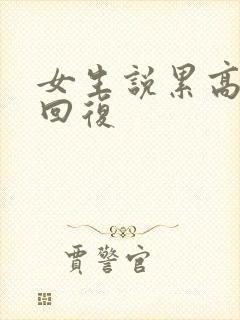 女生說累高
回復
賈警官